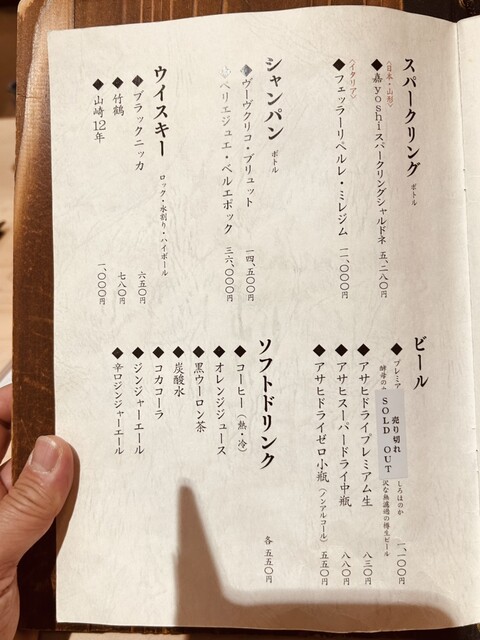 スパークリング ボトル
〈日本・山形〉
◆嘉yoshiスパークリングシャルドネ 五、二八〇円
〈イタリア〉
◆フェッラーリペルレ・ミレジム 一一、〇〇〇円
シャンパン ボトル
◆ヴーヴクリコ・ブリュット 一四、五〇〇円
◆ベリエジュエ・ベルエポック 三六、〇〇〇円
ウイスキー ロック・水割り・ハイボール
◆ブラックニッカ 六五〇円
◆竹鶴 七八〇円
◆山崎12年 一、〇〇〇円
ビール
◆プレミア しろほのか 一、一〇〇円
酵母の 沢な無濾過の樽生ビール
売り切れ
SOLD OUT
◆アサヒドライプレミアム生 八三〇円
◆アサヒスーパードライ中瓶 八八〇円
◆アサヒドライゼロ小瓶（ノンアルコール） 五五〇円
ソフトドリンク 各 五五〇円
◆コーヒー（熱・冷）
◆オレンジジュース
◆黒ウーロン茶
◆炭酸水
◆コカコーラ
◆ジンジャーエール
◆辛口ジンジャーエール